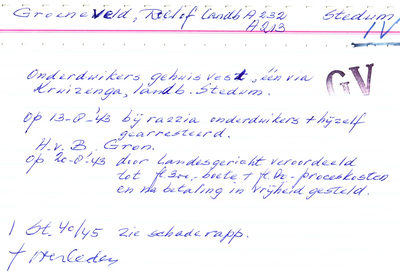 Groeneveld, Roelof landb A 232 Stedum
A 213
IV
Onderduikers gehuisvest, één via
Kruizenga, landb. Stedum.
GV
Op 13-8-'43 bij razzia onderduikers + hijzelf
gearresteerd.
H.v.B. Gron.
Op 20-8-'43 door Landesgericht veroordeeld
tot fl 300,- boete + fl. 80,- proceskosten
en na betaling in vrijheid gesteld.
1 bt. 40/45 zie schaderapp.
+ overleden